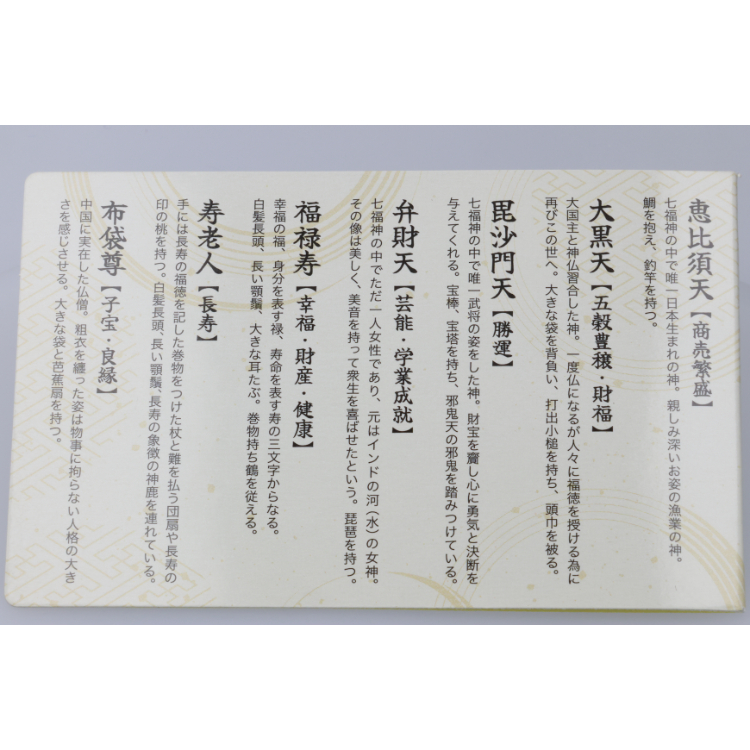 恵比須天【商売繁盛】
七福神の中で唯一日本生まれの神。親しみ深いお姿の漁業の神。
鯛を抱え、釣竿を持つ。
大黒天【五穀豊穣・財福】
大国主と神仏習合した神。一度仏になるが人々に福徳を授ける為に
再びこの世へ。大きな袋を背負い、打出小槌を持ち、頭巾を被る。
毘沙門天【勝運】
七福神の中で唯一武将の姿をした神。財宝を齎し心に勇気と決断を
与えてくれる。宝棒、宝塔を持ち、邪鬼天の邪鬼を踏みつけている。
弁財天【芸能・学業成就】
七福神の中でただ一人女性であり、元はインドの河（水）の女神。
その像は美しく、美音を持って衆生を喜ばせたという。琵琶を持つ。
福禄寿【幸福・財産・健康】
幸福の福、身分を表す禄、寿命を表す寿の三文字からなる。
白髪長頭、長い顎鬚、大きな耳たぶ。巻物持ち鶴を従える。
寿老人【長寿】
手には長寿の福徳を記した巻物をつけた杖と難を払う団扇や長寿の
印の桃を持つ。白髪長頭、長い顎鬚、長寿の象徴の神鹿を連れている。
布袋尊【子宝・良縁】
中国に実在した仏僧。粗衣を纏った姿は物事に拘らない人格の大き
さを感じさせる。大きな袋と芭蕉扇を持つ。